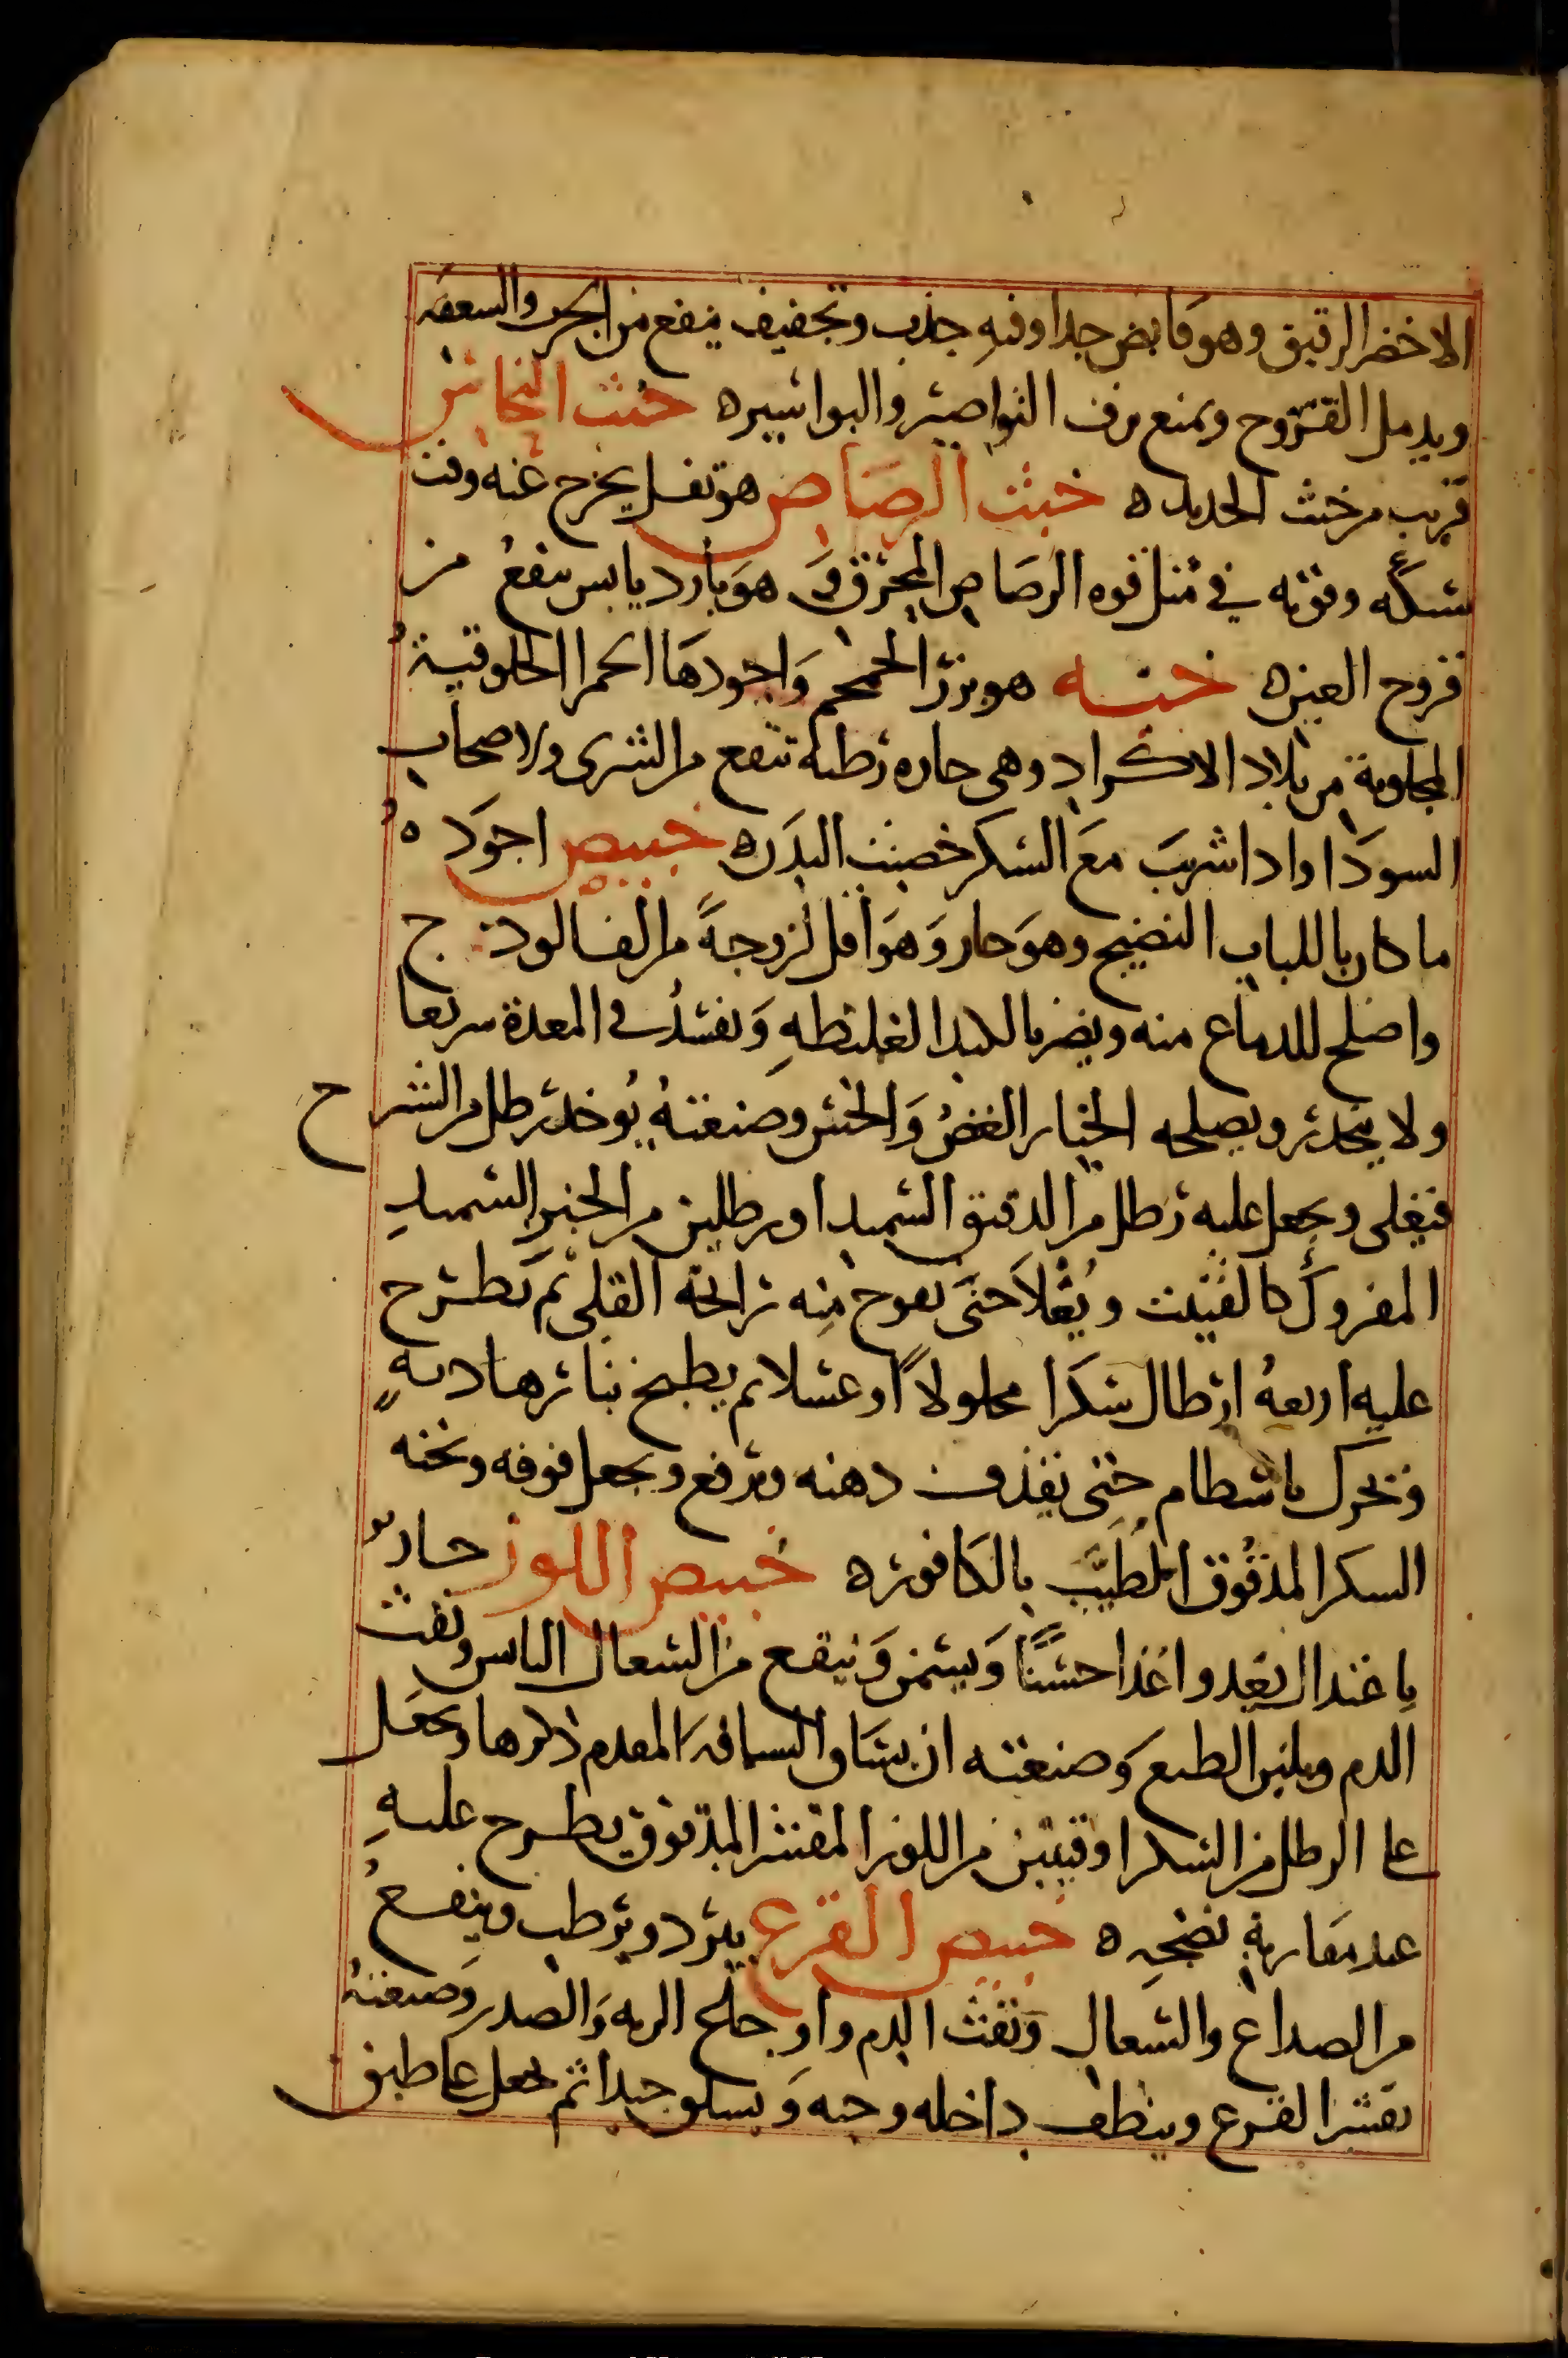 الاخضر الرقيق وهو قابض جدا وفيه جذب وتجفيف ينفع من الجرب والسعفه
ويدمل القروح ويمنع نزف النواصير والبواسيره خبث النحاس
قريب من خبث الحديده خبث الرصاص هو ثفل يخرج عنه وقت
سبكه وقوته في مثل قوه الرصاص المحرق وهو بارد يابس ينفع من
قروح العينه خبه هو بزر الخمخم واجودها الحمرا الخلوقية
المجلوبة من بلاد الاكراد وهى حاره رطبه تنفع من الشرى ولاصحاب
السودا واذا شربت مع السكر خصبت البدنه خبيص اجوده
ما كان باللباب النضيج وهو حار وهو اقل لزوجة من الفالوذج
واصلح للدماغ منه ويضر بالكبد الغليظه ويفسد في المعدة سريعا
ولا ينحدر ويصلحه الخيار الغض والخس وصنعته يوخذ رطل من الشيرح
فيغلى ويجعل عليه رطل من الدقيق السميد او رطلين من الخبز السميد
المفروك كالفتيت ويغلا حتى يفوح منه رايحة القلى ثم يطرح
عليه اربعة ارطال سكرا محلولا او عسلا ثم يطبخ بنار هاديه
وتحرك باسطام حتى يقذف دهنه ويرفع ويجعل فوقه وتحته
السكر المدقوق المطيب بالكافوره خبيص اللوز حار
باعتدال يغدوا غذا حسنا ويسمن وينفع من السعال اليابس ونفث
الدم ويلين الطبع وصنعته ان يساق السياقه المقدم ذكرها ويجعل
على الرطل من السكر اوقيتين من اللوز المقشر المدقوق يطرح عليه
عند مقاربة نضجه ه خبيص القرع يبرد ويرطب وينفع
من الصداع والسعال ونفث الدم واوجاع الريه والصدر وصنعته
يقشر القرع وينظف داخله وحبه ويسلق جيدا ثم يجعل على طبق